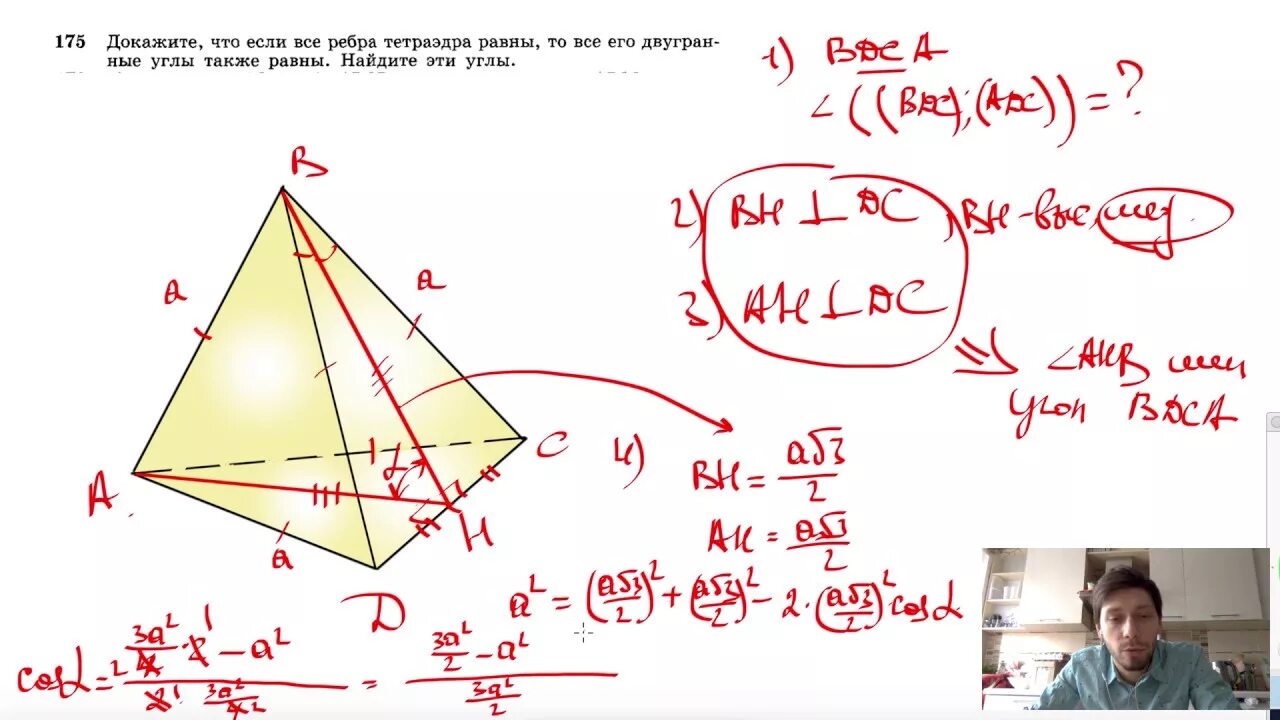 175 Докажите, что если все ребра тетраэдра равны, то все его двугран-
ные углы также равны. Найдите эти углы.
1) BDCA
∠((BDC);(ADC))=?
2) BH⊥DC, BH-выс, мед.
3) AH⊥DC
⇒ ∠AHB лин
угол BDCA
4) BH = a√3/2
AH = a√3/2
a² = (a√3/2)² + (a√3/2)² - 2·(a√3/2)² cosα
cosα = (3a²/4·2 - a²)/(2·3a²/4) = (3a²/2 - a²)/(3a²/2)
B
a
a
A
C
α
H
a
D